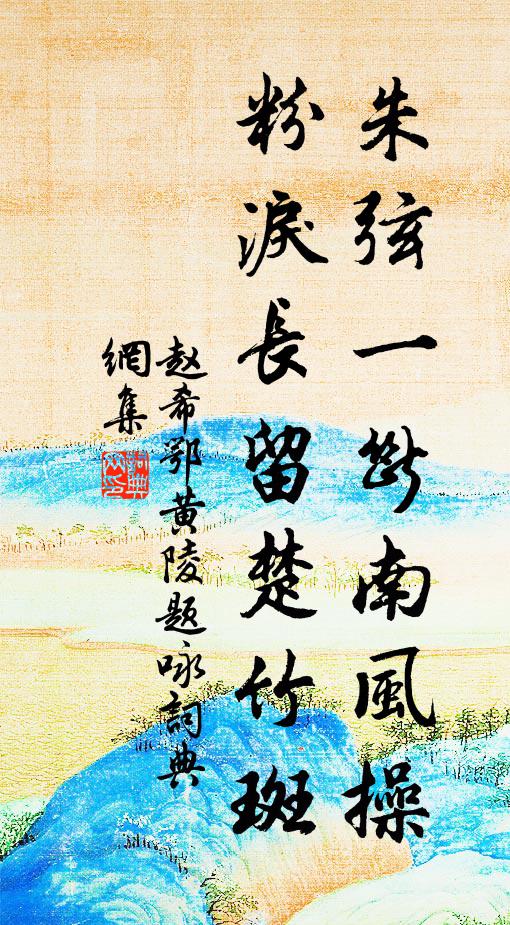 朱弦一斷南風操
粉淚長留楚竹斑
赵希鄂黄陵题咏詞典
網集
詞典